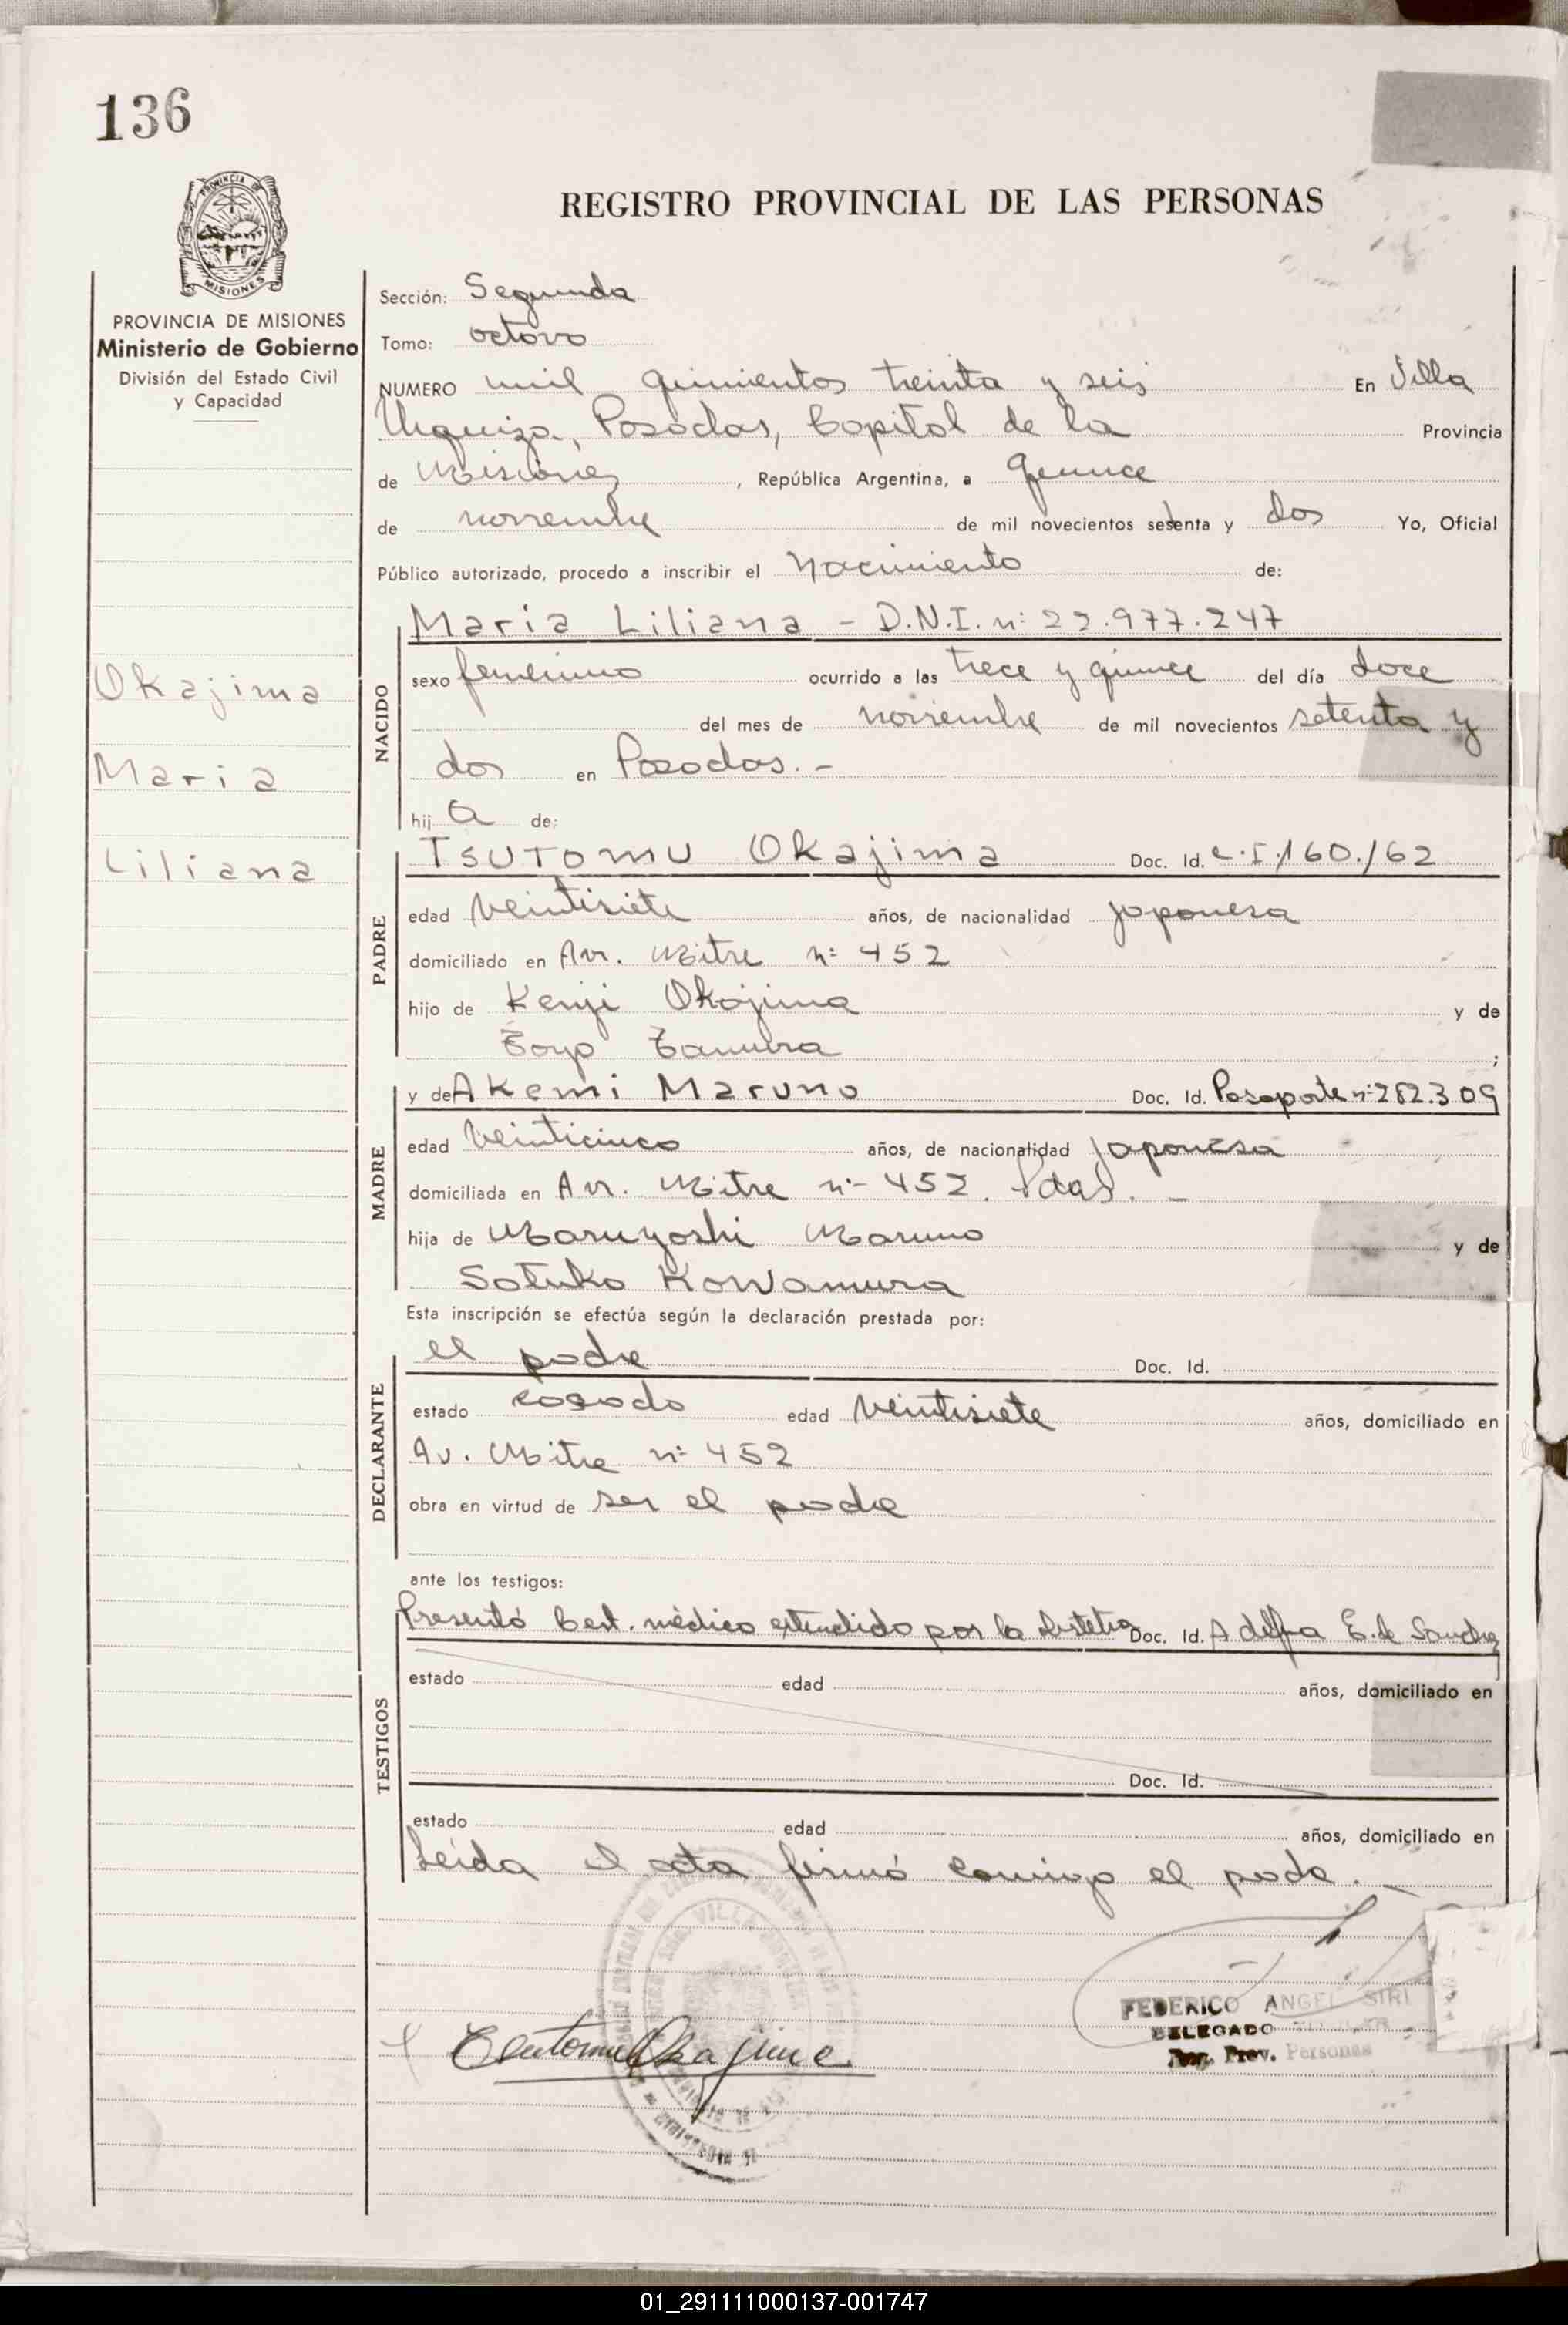 136
PROVINCIA DE
MISIONES
PROVINCIA DE MISIONES
Ministerio de Gobierno
División del Estado Civil
y Capacidad
Okajima
Maria
Liliana
REGISTRO PROVINCIAL DE LAS PERSONAS
Sección: Segunda
Tomo: octavo
NUMERO mil quinientos treinta y seis En Villa
Urquiza, Posadas, Capital de la Provincia
de Misiones, República Argentina, a quince
de noviembre de mil novecientos setenta y dos Yo, Oficial
Público autorizado, procedo a inscribir el Nacimiento de:
NACIDO
Maria Liliana - D.N.I. nº 22.977.247
sexo femenino ocurrido a las trece y quince del día doce
del mes de noviembre de mil novecientos setenta y
dos en Posadas.-
hij a de:
PADRE
Tsutomu Okajima Doc. Id. C.I. 160.162
edad veintisiete años, de nacionalidad japonesa
domiciliado en Av. Mitre nº 452
hijo de Kenji Okajima y de
Toyo Tamura ;
MADRE
y de Akemi Maruno Doc. Id. Pasaporte nº 282.309
edad veinticinco años, de nacionalidad japonesa
domiciliada en Av. Mitre nº 452. Pdas. -
hija de Maruyoshi Maruno y de
Satuko Kowamura
Esta inscripción se efectúa según la declaración prestada por:
DECLARANTE
el padre Doc. Id.
estado casado edad veintisiete años, domiciliado en
Av. Mitre nº 452
obra en virtud de ser el padre
ante los testigos:
TESTIGOS
Presentó Cert. médico extendido por la Doc. Id. Adelfa E. de Sanchez
estado edad años, domiciliado en
Doc. Id.
estado edad años, domiciliado en
Leída el acta firmó conmigo el padre. -
Tsutomu Okajima
FEDERICO ANGEL SIRI
DELEGADO TITULAR
Reg. Prov. Personas
01_291111000137-001747